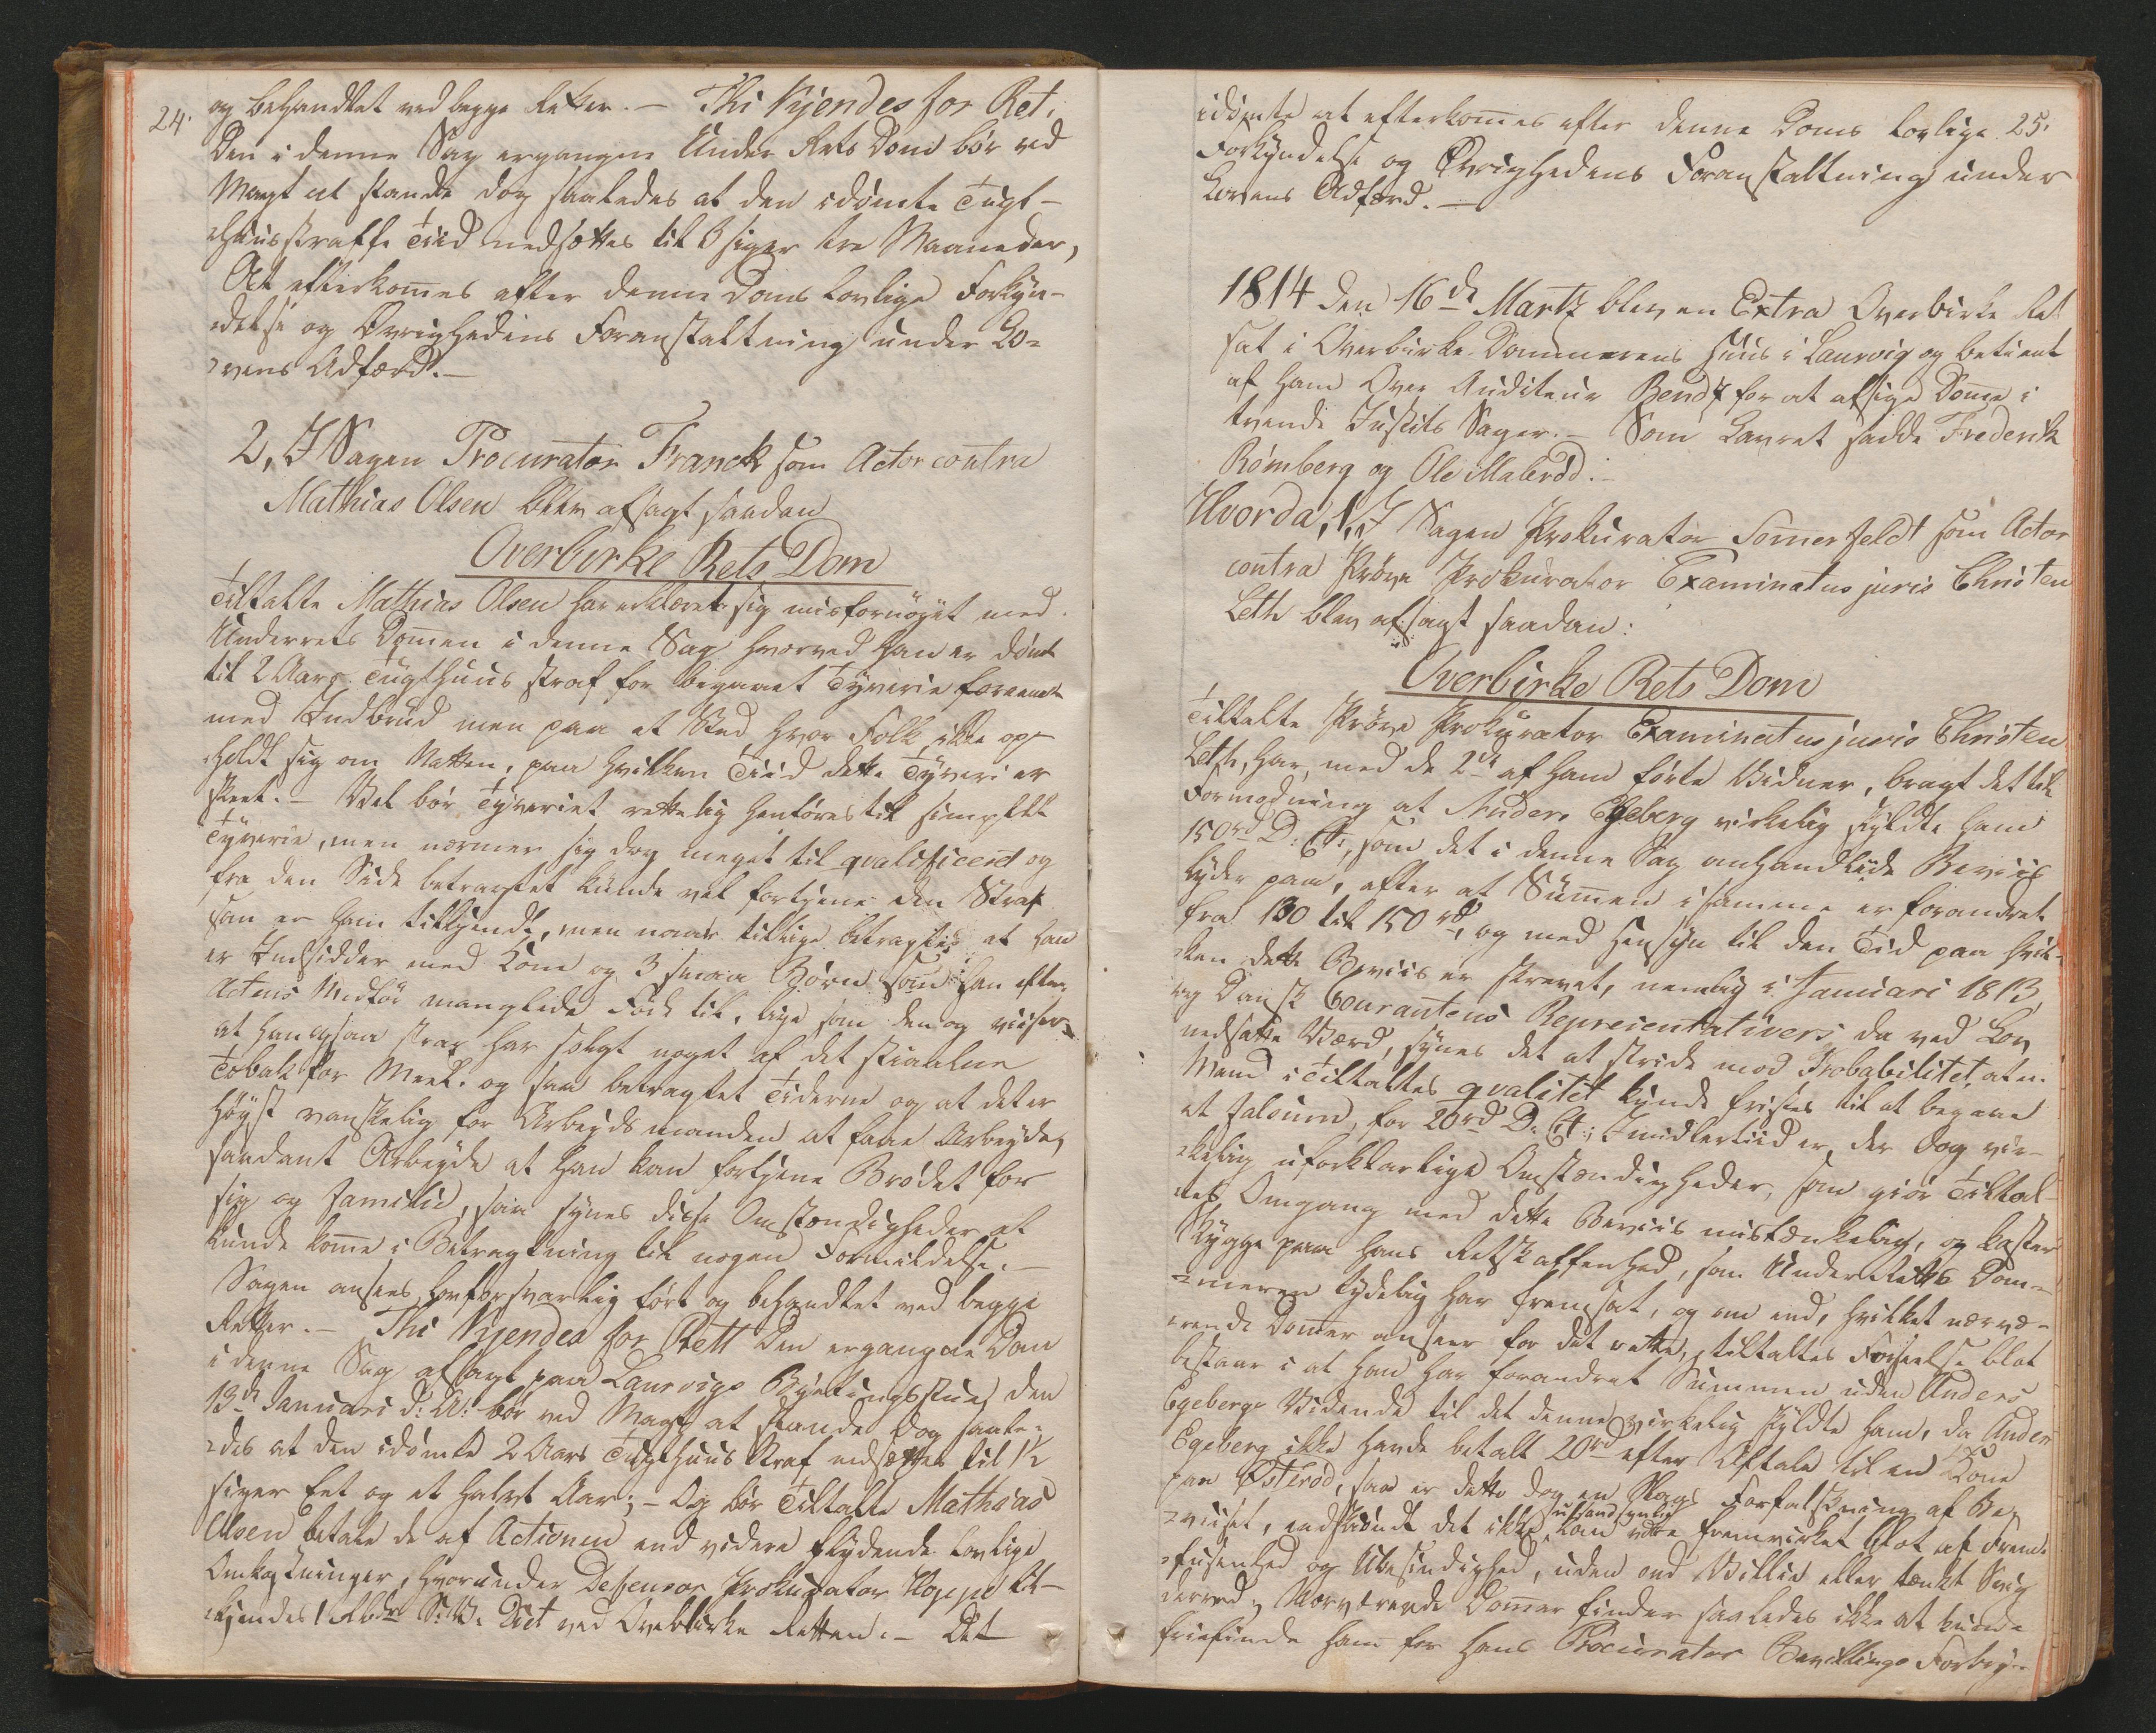 24.
og behandlet ved begge Retter. – Thi Kjendes for Ret,
Den i denne Sag ergangne Under Rets Dom bör ved
Magt at stande dog saaledes at den idömte Tugt-
huusstraffe Tiid nedsættes til 3 siger tre Maaneder,
At efterkomes efter denne Doms lovlige Forkyn-
delse og Övrighedens Foranstaltning under Lo-
vens Adfærd. –
2, I Sagen Procurator Franck som Actor contra
Mathias Olsen blev afsagt saadan
Overbirke Rets Dom
Tiltalte Mathias Olsen har erklæret sig misfornöyet med
Underrets Domen i denne Sag hvorved han er dömt
til 2 Aars Tugthuus straf for begaaet Tyverie foreenet
med Indbrud men paa et Sted hvor Folk ikke op-
holdt sig om Natten, paa hvilken Tiid dette Tyveri er
skeet. – Vel bör Tyveriet rettelig henföres til simpelt
Tyverie, men nærmer sig dog meget til qvalificeret og
fra den Side betragtet kunde vel fortjene den Straf
som er ham tilkjendt, men naar tillige betragtes at han
er Indsidder med Kone og 3 smaa Börn som han efter
Actens Medför manglede Föde til, lige som den og viiser
at han ogsaa strax har solgt noget af det stiaalne
Tobak for Meel. og saa betragtet Tiderne og at det er
höyst vanskelig for Arbeydsmanden at faae Arbeyde,
saadant Arbeyde at han kan fortjene Brödet for
sig og Familie, saa synes disse Omstændigheder at
kunde kome i Betragtning til nogen Formildelse. –
Sagen ansees lovforsvarlig fört og behandlet ved begge
Retter. – Thi Kjendes for Rett Den ergangne Dom
i denne Sag afsagt paa Laurvigs Byetingsstue den
13de Januari d: A: bör ved Magt at stande dog saale-
des at den idömte 2 Aars Tugthuus Straf nedsættes til 1½
siger Eet og et halvt Aar; – Og bör Tiltalte Mathias
Olsen betale de af Actionen end videre flydende lovlige
Omkostninger, hvorunder Defensor Prokurator Hoppe til-
kjendes 1 Rbdr S: V: Alt ved Overbirke Retten. – Det
25.
idömte at efterkomes efter denne Doms lovlige
Forkyndelse og Övrighedens Foranstaltning under
Lovens Adfærd. –
1814 den 16de Martz blev en Extra Overbirke Ret
sat i Overbirke Dommerens Huus i Laurvig og betient
af ham Over Auditeur Bendz for at afsige Dome i
tvende Justits Sager. – Som Lavret sadde Frederik
Römberg og Ole Maleröd. –
Hvorda, 1, I Sagen Prokurator Somerfeldt som Actor
contra Pröve Prokurator Examinatus juris Christen
Leth blev afsagt saadan:
Overbirke Rets Dom
Tiltalte Pröve Prokurator Examinatus juris Christen
Leth, har, med de 2de af ham förte Vidner, bragt det til
Formodning at Anders Egeberg virkelig skyldte ham
150rd D: Ct:, som det i denne Sag omhandlede Beviis
lyder paa, efter at Sumen i samme er forandret
fra 130 til 150rd, og med Hensyn til den Tid paa hvil-
ken dette Beviis er skrevet, nemlig i Januari 1813,
og Dansk Courantens Representativers da ved Lov
nedsatte Værd, synes det at stride mod Probabilitet, at en
Mand i Tiltaltes qvalitet kunde fristes til at begaae
et Falsum, for 20rd D. Ct:; Imidlertiid er der dog vir-
kelig uforklarlige Omstændigheder, som giör Tiltal-
tes Omgang med dette Beviis mistænkelig, og kaster
Skygge paa hans Retskaffenhed, som Under Retts Dom-
meren tydelig har fremsat, og om end, hvilket nærvæ-
rende Domer anseer for det rette, Tiltaltes Forseelse blot
bestaar i at han har forandret Summen uden Anders
Egebergs Vidende til det denne virkelig skyldte ham, da Anders
Egeberg ikke havde betalt 20rd efter Aftale til en Kone
paa Österöd, saa er dette dog en Slags Forfalskning af Be-
viiset, endskiöndt det ikke usandsynlig kan være fremvirket blot af Frem-
fusenhed og Ubesindighed, uden ond Villie eller tænkt Svig
derved; Nærværende Domer finder saaledes ikke at kunde
friefinde ham for hans Procurator Bevillings Forbry-